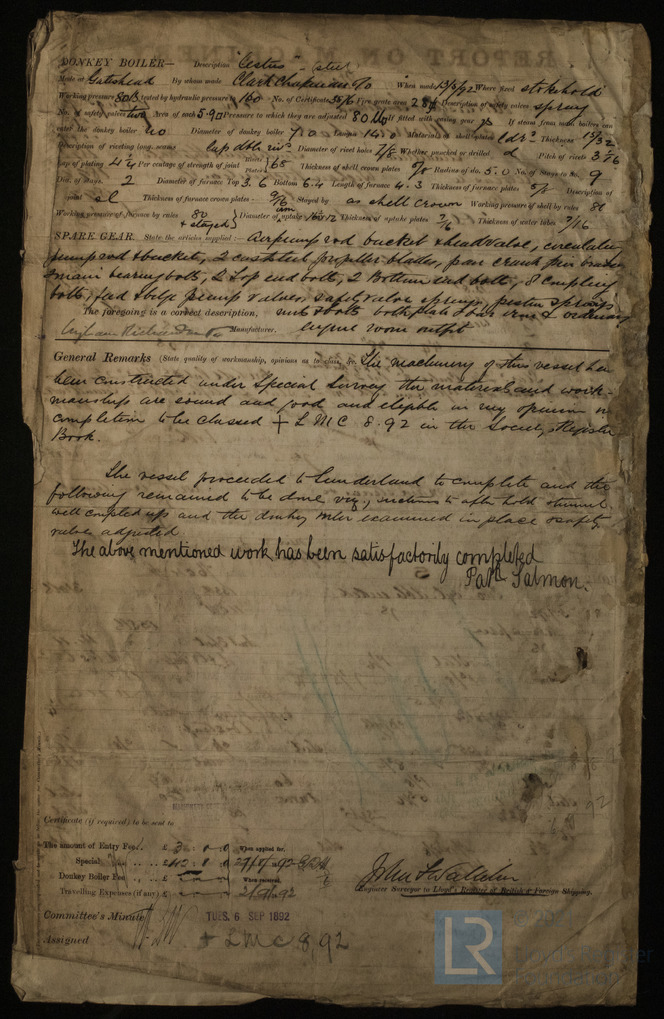 DONKEY BOILER— Description Cestus (steel)
Made at Gateshead By whom made Clark Chapman & Co When made 13/5/92 Where fixed stokehold
Working pressure 80lb tested by hydraulic pressure to 160 No. of Certificate Fire grate area 28 ft Description of safety valves spring
No. of safety valves two Area of each 5.90 Pressure to which they are adjusted 80 lb If fitted with easing gear yes If steam from main boilers can
enter the donkey boiler no Diameter of donkey boiler 7.0 Length 14.0 Material of shell plates Thickness 19/32
Description of riveting long. seams lap dble riv Diameter of rivet holes 7/8 Whether punched or drilled d Pitch of rivets 3
Lap of plating 4 1/4 Per centage of strength of joint Rivets Plates 68 Thickness of shell crown plates Radius of do. 5.0 No. of Stays to do. 9
Dia. of stays. 2 Diameter of furnace Top 3.6 Bottom 6.4 Length of furnace 4.3 Thickness of furnace plates Description of
joint Thickness of furnace crown plates 9/16 Stayed by as shell crown Working pressure of shell by rules 81
Working pressure of furnace by rules 80 + stayed Diameter of uptake Thickness of uptake plates Thickness of water tubes 7/16
SPARE GEAR. State the articles supplied:— Air pump rod bucket & head valve, circulating
pump rod & bucket, 2 cast steel propeller blades, pair crank pin brasses
2 main bearing bolts, 2 Top end bolts, 2 Bottom end bolts, 8 coupling
bolts, feed & bilge pump valves, safety valve springs, piston springs,
The foregoing is a correct description, nuts & bolts both plate & bar iron & ordinary
Manufacturer. engine room outfit
General Remarks (State quality of workmanship, opinions as to class, &c. The machinery of this vessel has
been constructed under Special Survey the materials and work-
manship are sound and good and eligible in my opinion on
completion to be classed + LMC 8.92 in the Society's Register
Book.
The vessel proceeded to Sunderland to complete and the
following remained to be done viz, suctions to after hold & tunnel
well coupled up and the donkey boiler examined in place & safety
valves adjusted
The above mentioned work has been satisfactorily completed
Patk Salmon.
Certificate (if required) to be sent to
The amount of Entry Fee .. £ 3 : 0 : 0 When applied for,
Special .. .. £ 42 : 0 : 0
Donkey Boiler Fee .. .. £ When received,
Travelling Expenses (if any) £
Engineer Surveyor to Lloyd's Register of British & Foreign Shipping.
Committee's Minute TUES. 6 SEP 1892
Assigned + LMC 8.92
LR
© 2021
Lloyd's Register
Foundation